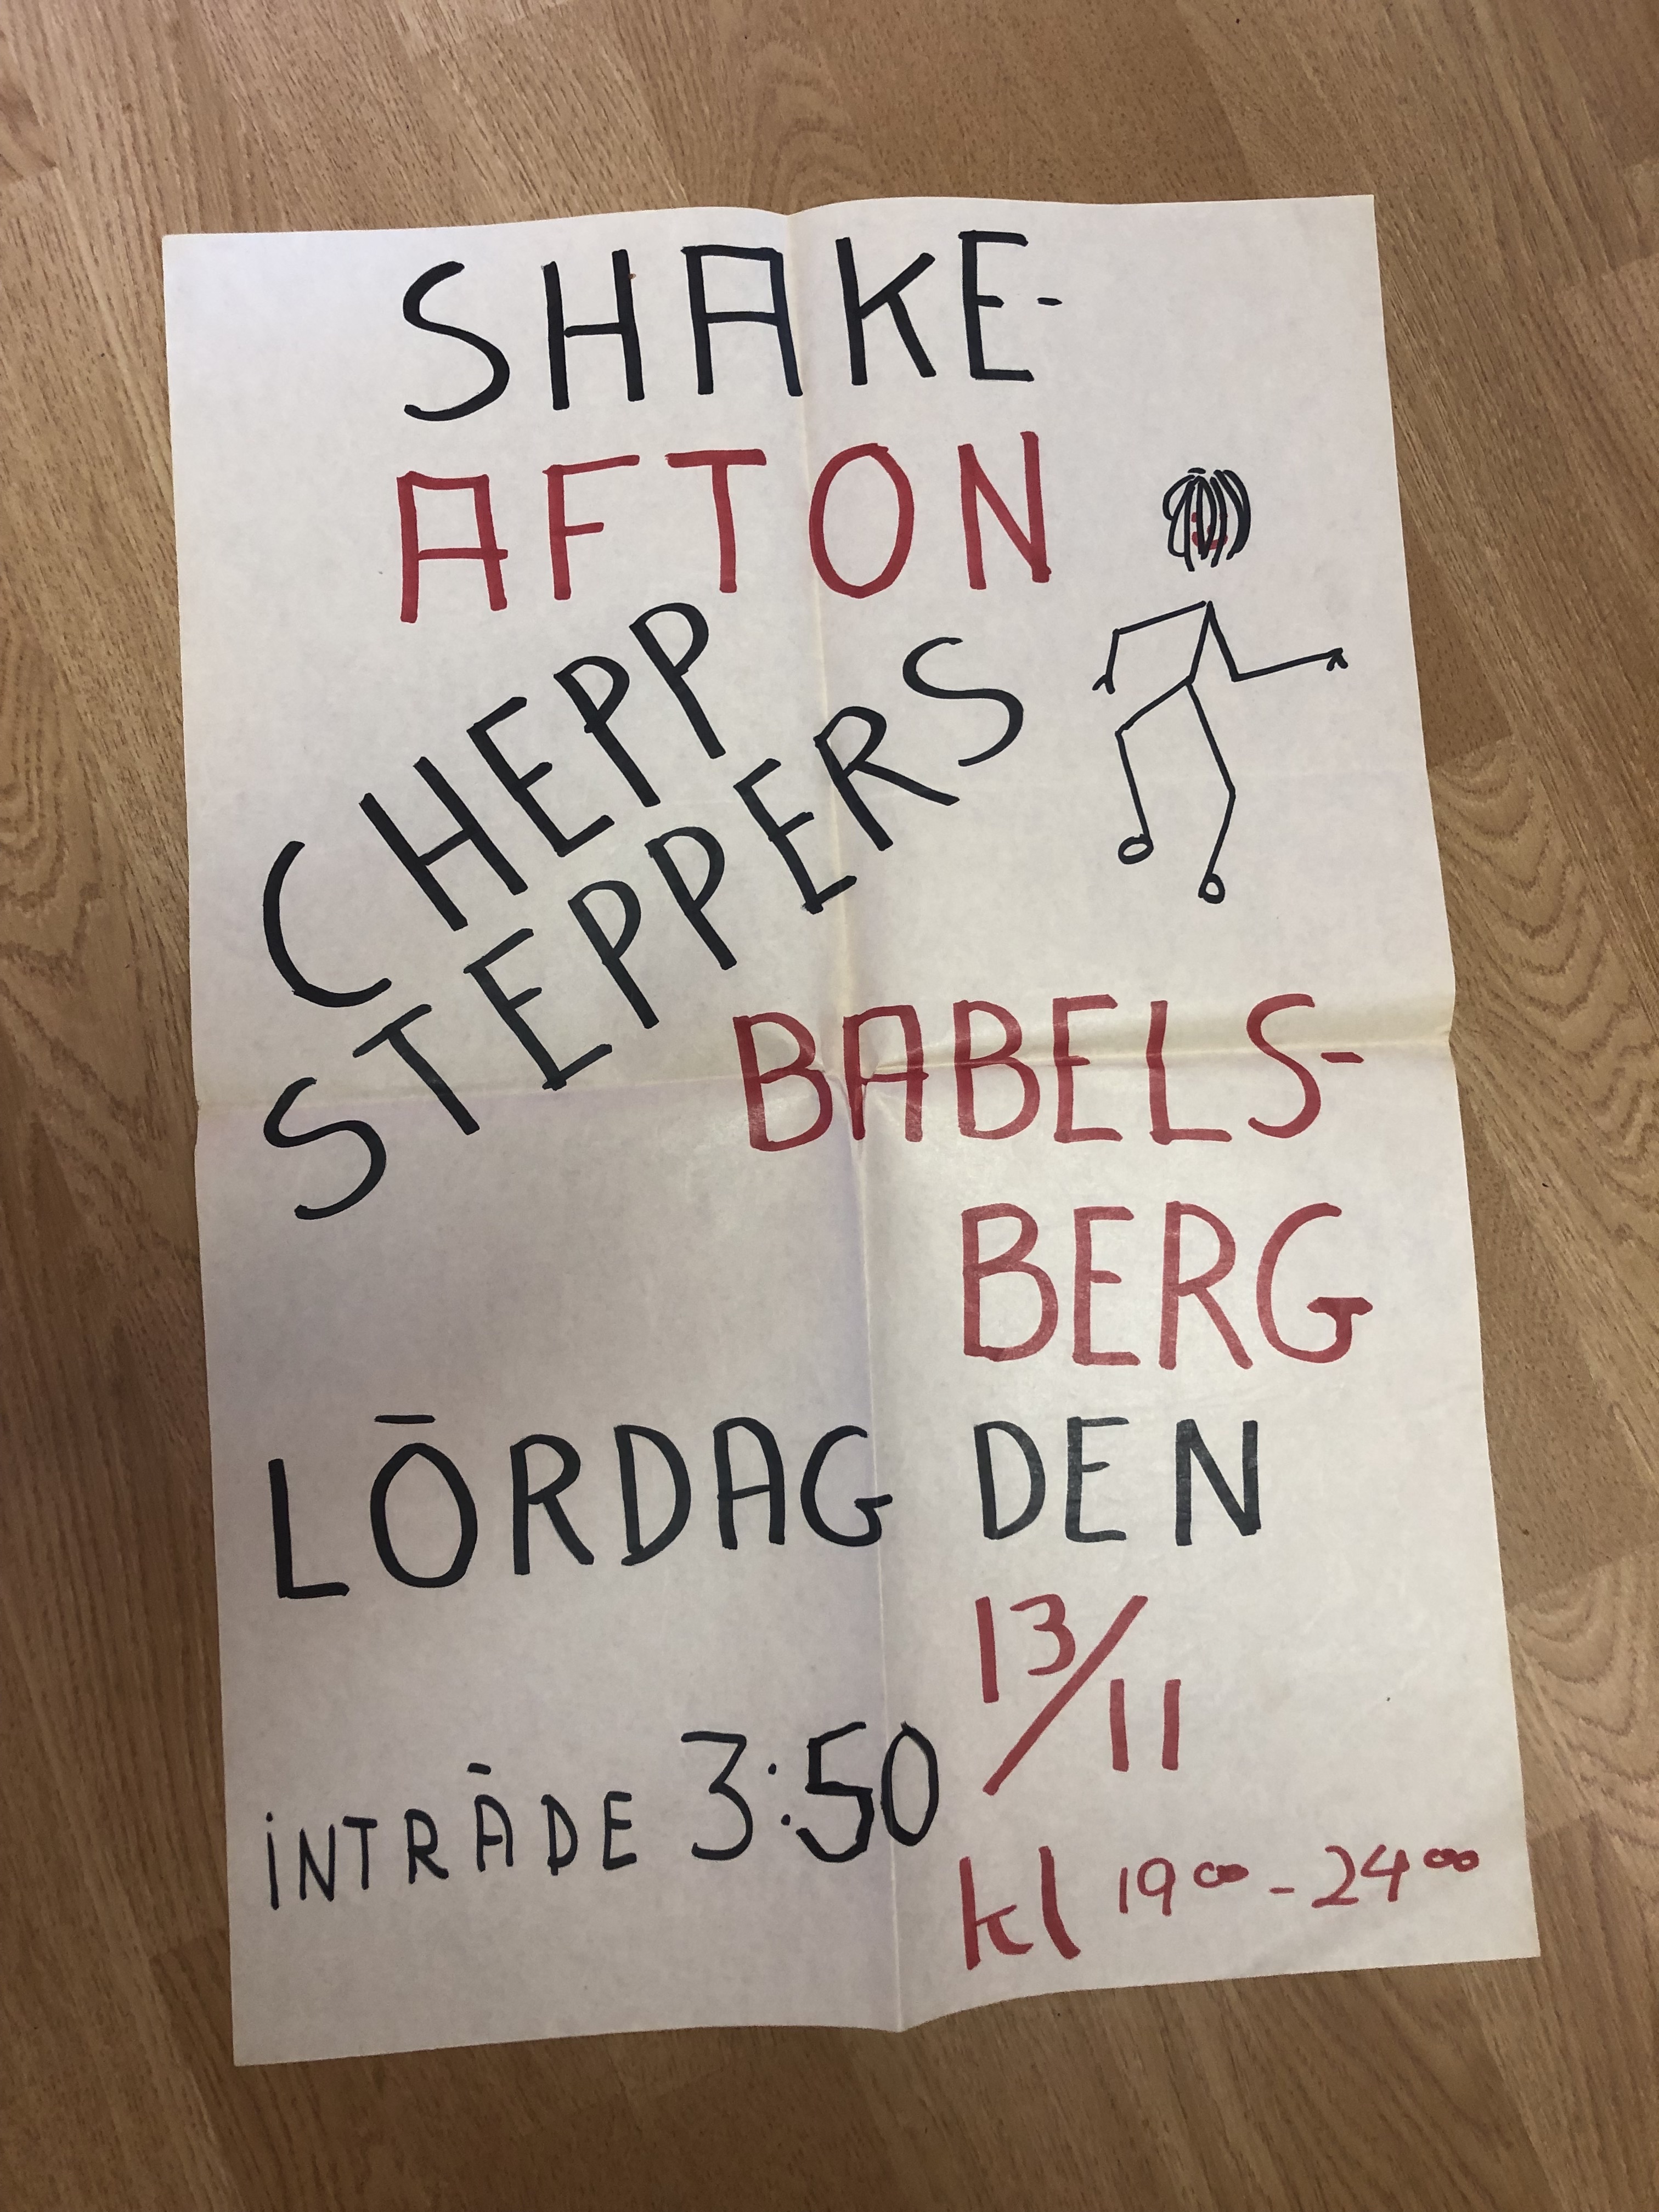 SHAKE-
AFTON
CHEPP
STEPPERS
BABELS-
BERG
LÖRDAG DEN
13/11
INTRÄDE 3:50
kl 19⁰⁰ - 24⁰⁰